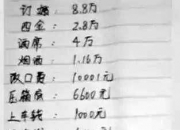 订婚: 8.8万
四金: 2.8万
酒席: 4万
烟酒: 1.16万
改口费: 10001元
压箱底: 6600元
上车钱: 1000元